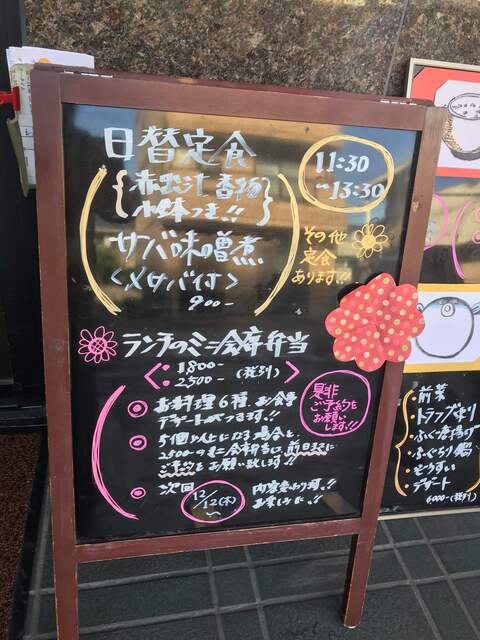 日替定食
11:30
〜13:30
赤出汁 香物
小鉢つき!!
サバ味噌煮
<メサバイ付>
900-
その他
定食
あります!!
ランチのミニ会席弁当
1800-
2500- (税別)
是非
ご予約を
お願い
します!!
お料理6種 お食事
デザートがつきます!!
5個以上になる場合と、
2500-のミニ会席弁当は前日までに
ご予約をお願い致します!!
次回 12/12(木)〜 内容変わります!!
お楽しみに!!
前菜
ふぐ唐揚げ
ふぐちり鍋
ぞうすい
デザート
6,000-(税別)